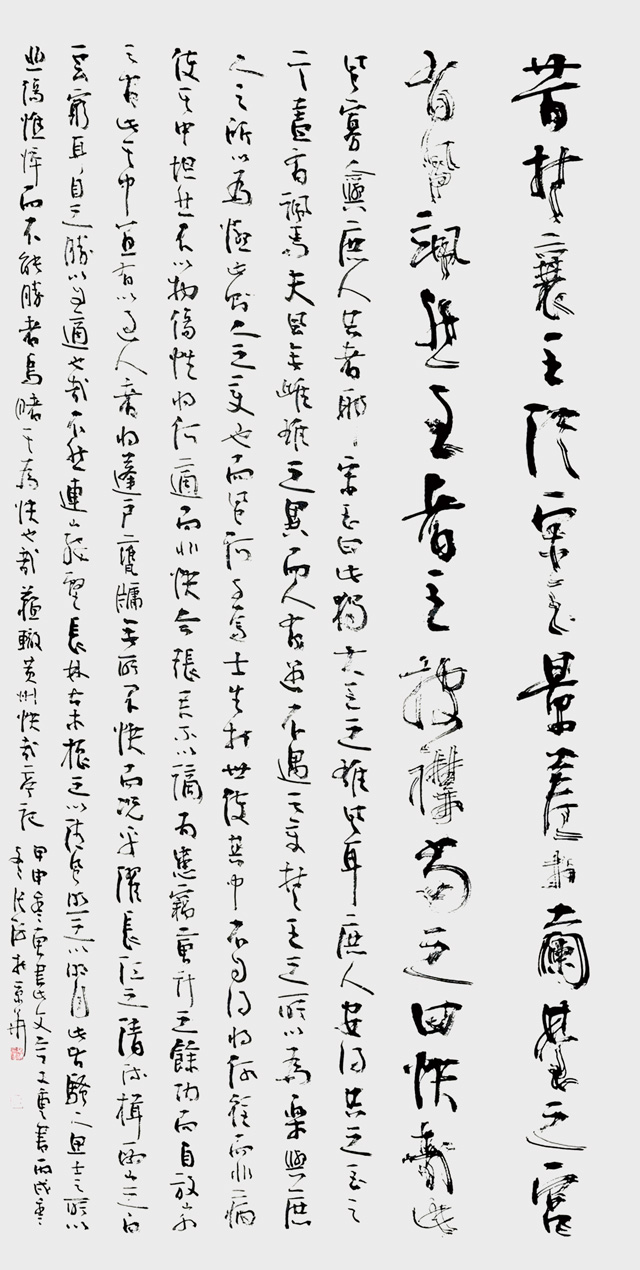 昔楚襄王從宋玉景差於蘭臺之宮
有風颯然至者王披襟當之曰快哉此
風寡人與庶人共者耶宋玉曰此獨大王之雄風耳庶人安得共之玉之
言蓋有諷焉夫風無雌雄之異而人有遇不遇之變楚王之所以為樂與庶
人之所以為憂此則人之變也而風何與焉士生於世使其中不自得將何往而非病
使其中坦然不以物傷性將何適而非快今張君不以謫為患竊會計之餘功而自放山水
之間此其中宜有以過人者將蓬戶甕牖無所不快而況乎濯長江之清流揖西山之白
雲窮耳目之勝以自適也哉不然連山絕壑長林古木振之以清風照之以明月此皆騷人思士之所以
悲傷憔悴而不能勝者烏睹其為快也哉蘇轍黃州快哉亭記
甲申 書此文今又重書丙戌冬
於京華